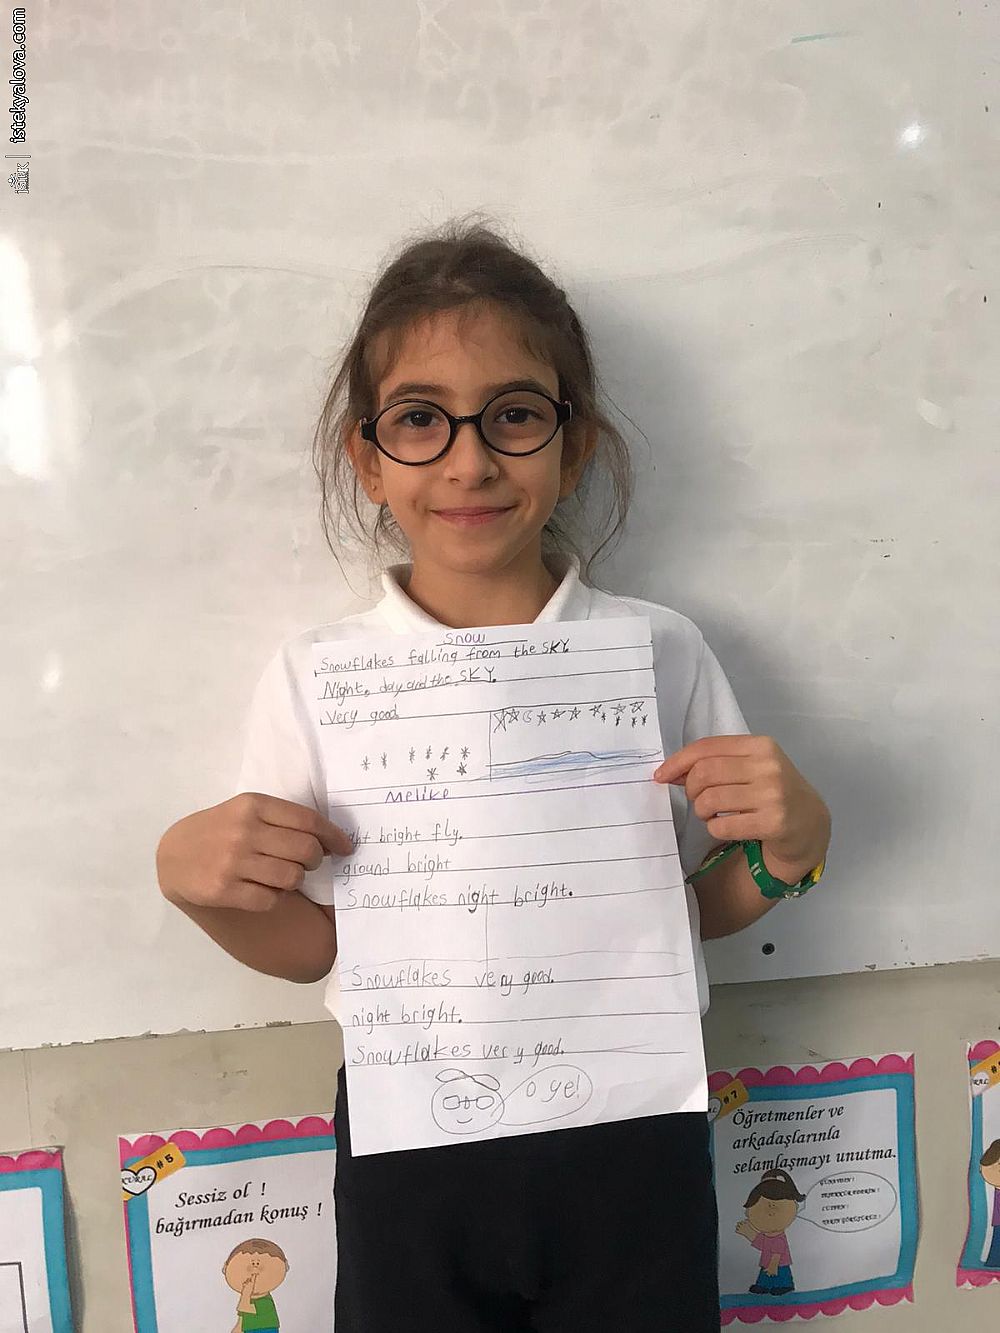 istekyalova.com
Snow
Snowflakes falling from the SKY.
Night, day and the SKY.
Very good
Melike
bright fly.
ground bright
Snowflakes night bright.
Snowflakes very good.
night bright.
Snowflakes very good.
o ye!
KURAL #5
Sessiz ol !
bağırmadan konuş !
#7
Öğretmenler ve
arkadaşlarınla
selamlaşmayı unutma.
GÜNAYDIN !
TEŞEKKÜR EDERİM !
LÜTFEN !
YARIN GÖRÜŞÜRÜZ !